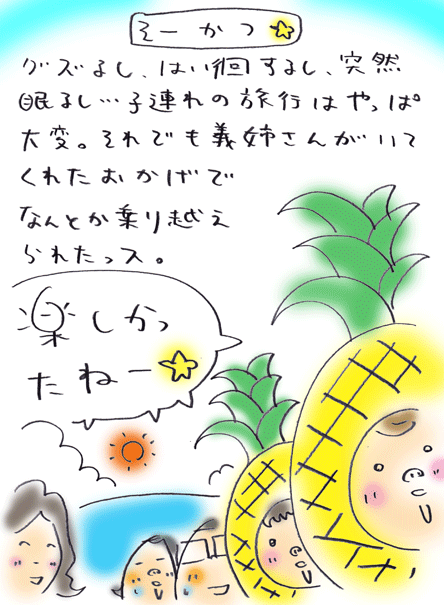 そーかつ☆
グズるし、はい徊するし、突然
眠るし…子連れの旅行はやっぱ
大変。それでも義姉さんがいて
くれたおかげで
なんとか乗り越え
られたっス。
楽しかっ
たねー☆